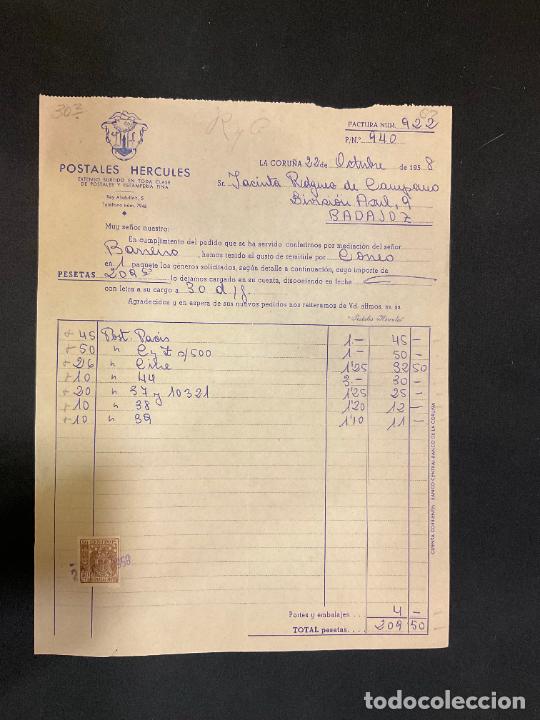 303
R y C
FACTURA NUM. 922
P/N.º 940
POSTALES HERCULES
EXTENSO SURTIDO EN TODA CLASE
DE POSTALES Y ESTAMPERIA FINA
Rey Abdullah, 5
Teléfono núm. 7946
LA CORUÑA 22 de Octubre de 1958
Sr. Jacinta Ridgruejo de Campano
División Azul, 9
BADAJOZ
Muy señor nuestro:
En cumplimiento del pedido que se ha servido conferirnos por mediación del señor
Barrero, hemos tenido el gusto de remitirle por Correo
en 1 paquete los géneros solicitados, según detalle a continuación, cuyo importe de
PESETAS 209'5 lo dejamos cargado en su cuenta, disponiendo en fecha
con letra a su cargo a 30 d/f.
Agradecidos y en espera de sus nuevos pedidos nos reiteramos de Vd. affmos. ss. ss.
"Postales Hércules"
45 Post. Paris 1.- 45 -
50 " C y F 9/500 1- 50 -
26 " Cibe 1'25 32 50
10 " 44 3- 30 -
20 " 37 y 10321 1'25 25 -
10 " 38 1'20 12 -
10 " 39 1'10 11 -
CUENTA CORRIENTE: BANCO CENTRAL-BANCO DE LA CORUÑA
958
Portes y embalajes.... 4 -
TOTAL pesetas.... 209 50
todocoleccion.net